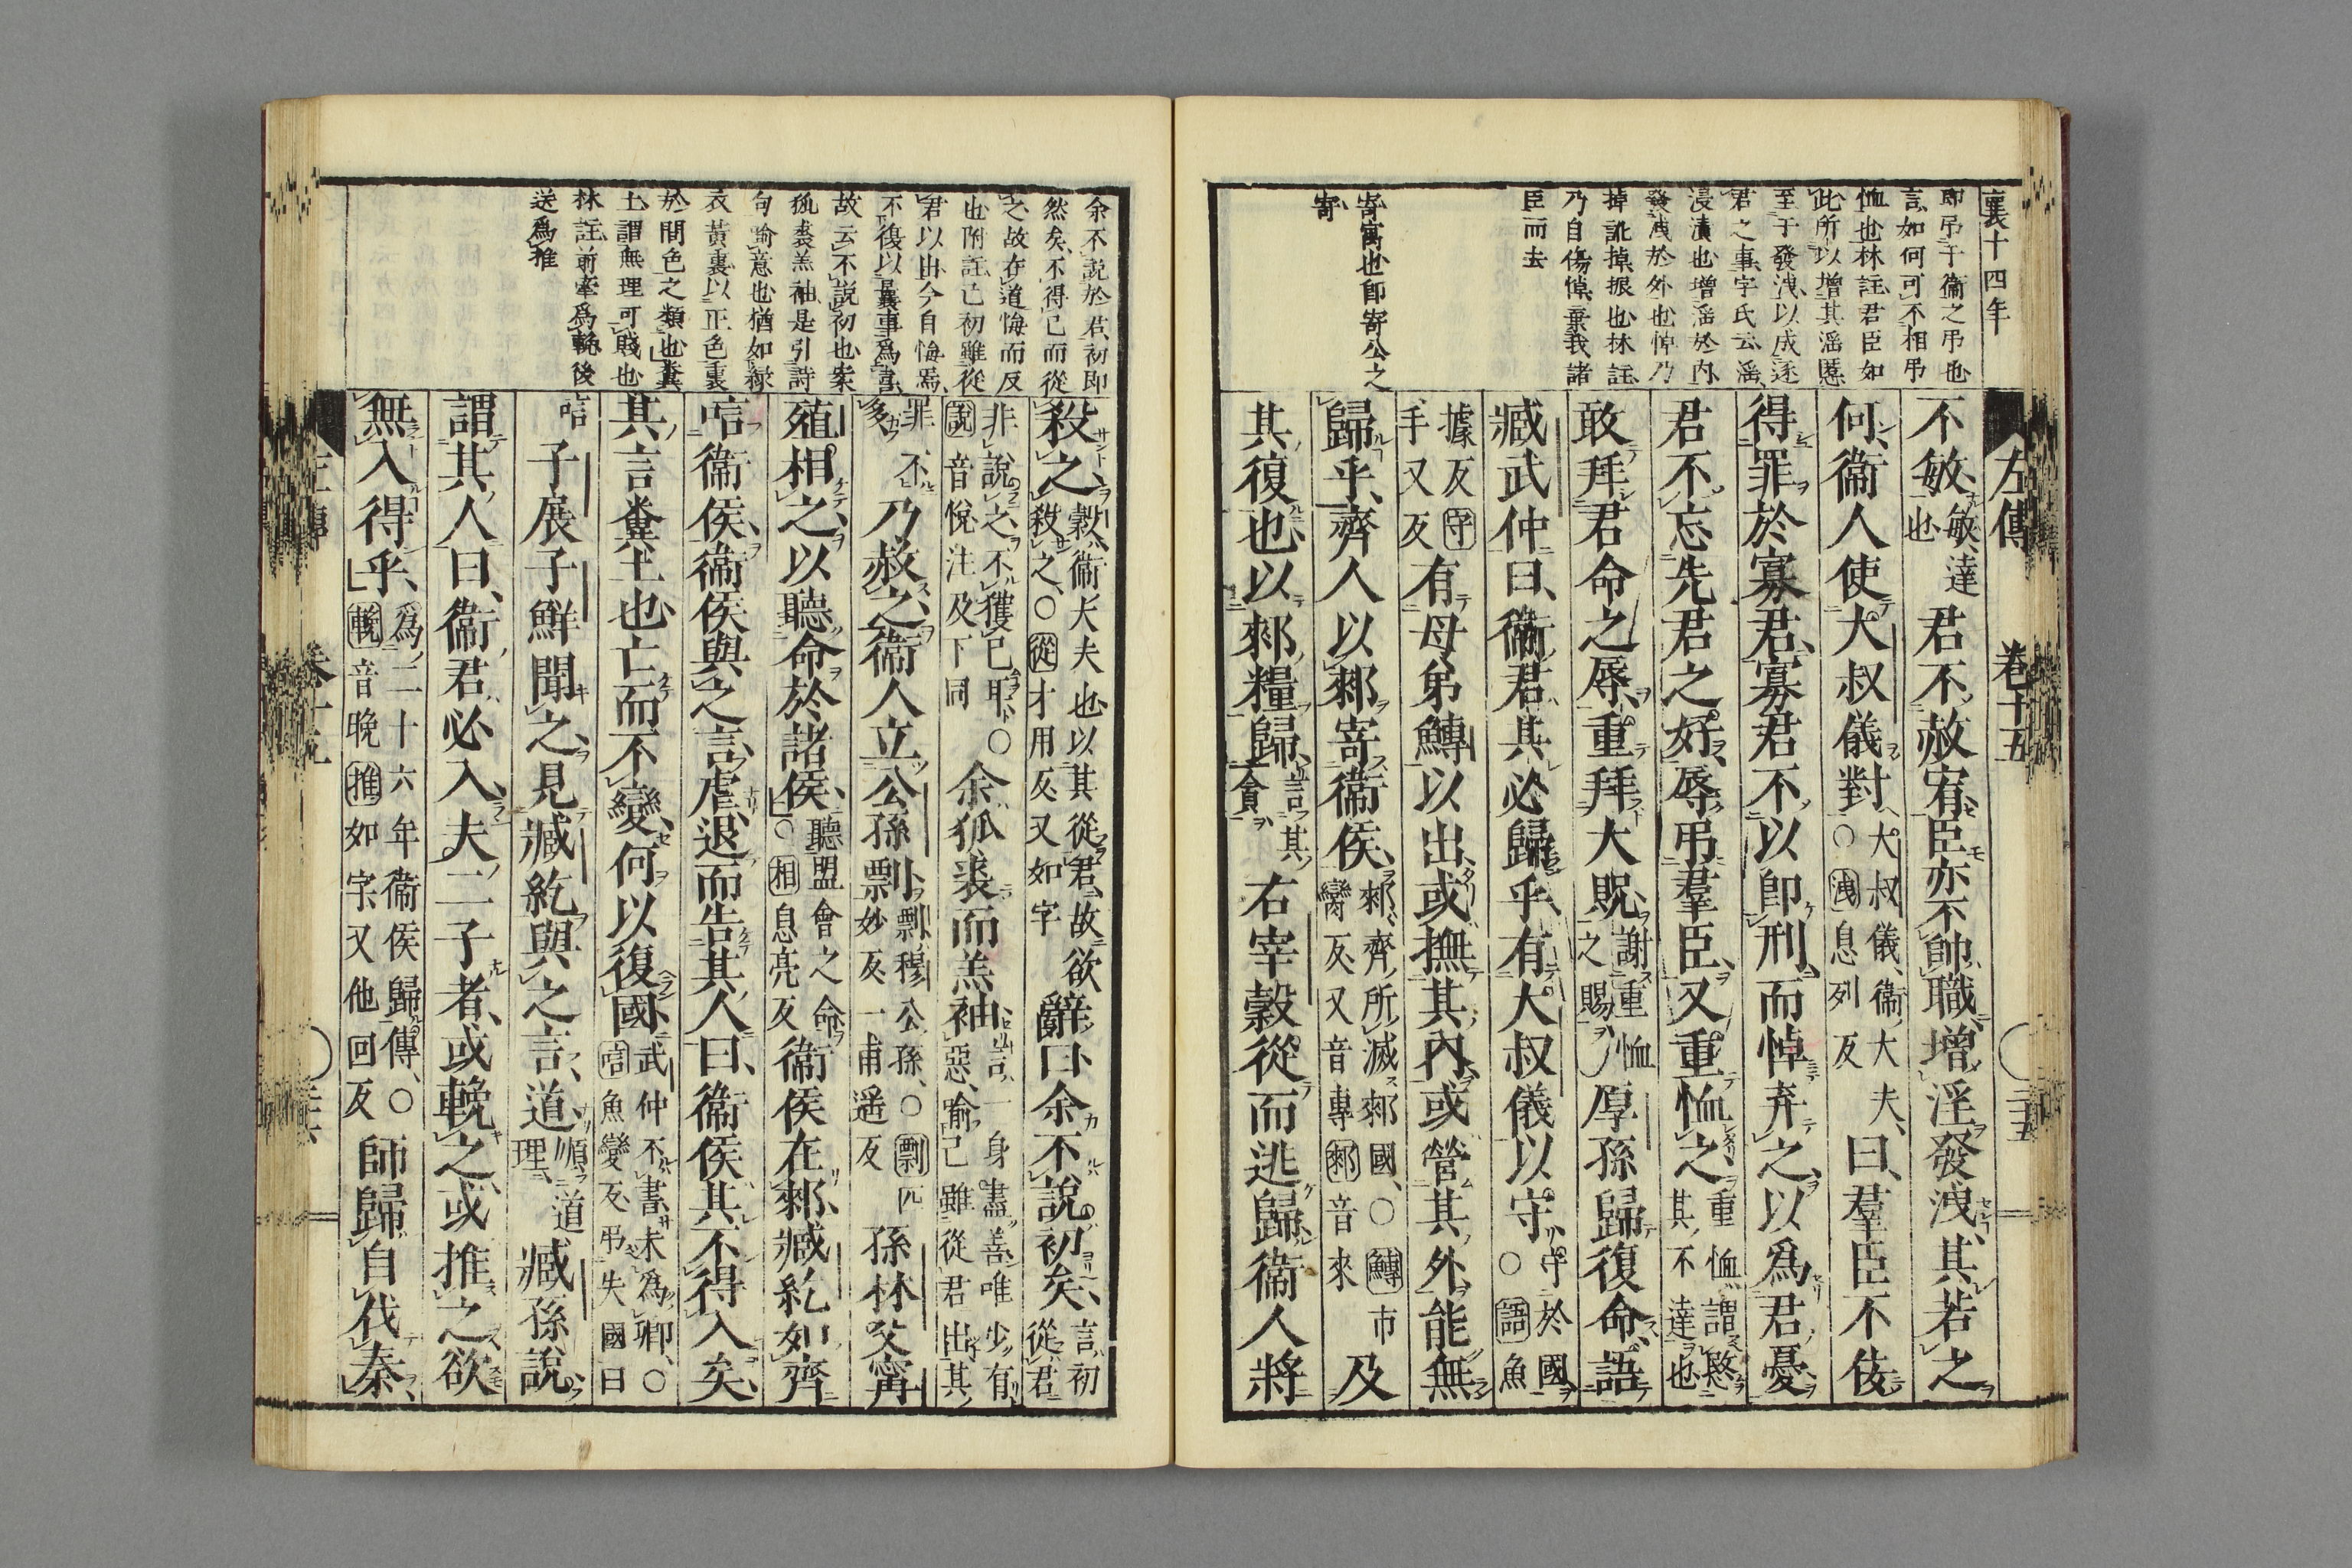 襄十四年
即弔于衞之弔也
言如何可不相弔
恤也林註君臣如
此所以增其淫慝
至于發洩以成逐
君之事宇氏云淫
浸漬也增淫於內
發洩於外也悼乃
掉訛掉振也林註
乃自傷悼棄我諸
臣而去
寄寓也即寄公之
寄
左傳　卷十五　二十五
不敏敏達也君不赦宥臣亦不帥職增淫發洩其若之
何衞人使大叔儀對大叔儀衞大夫○洩息列反曰羣臣不佞
得罪於寡君寡君不以即刑而悼弃之以爲君憂
君不忘先君之好辱弔羣臣又重恤之重恤謂愍其不達也
敢拜君命之辱重拜大貺謝重恤之賜厚孫歸復命語
臧武仲曰衞君其必歸乎有大叔儀以守守於國○語魚
據反守手又反有母弟鱄以出或撫其內或營其外能無
歸乎齊人以郲寄衞侯郲齊所滅郲國○鱄市臠反又音專郲音來及
其復也以郲糧歸言其貪右宰穀從而逃歸衞人將
余不說於君初即
然矣不得已而從
之故在道悔而反
也附註已初雖從
君以出今自悔焉
不復以曩事爲意
故云不說初也案
狐裘羔袖是引詩
句喻意也猶如綠
衣黃裏以正色裏
於間色之類也糞
土謂無理可賤也
林註前牽爲輓後
送爲推
殺之穀衞大夫也以其從君故欲殺之○從才用反又如字辭曰余不說初矣言初從君
非說之不獲已耳○說音悅注及下同余狐裘而羔袖言一身盡善唯少有惡喻己雖從君出其
罪不多乃赦之衞人立公孫剽剽穆公孫○剽匹妙反一甫遙反孫林父甯
殖相之以聽命於諸侯聽盟會之命○相息亮反衞侯在郲臧紇如齊
唁衞侯衞侯與之言虐退而告其人曰衞侯其不得入矣
其言糞土也亡而不變何以復國武仲不書未爲卿○唁魚變反弔失國曰
唁子展子鮮聞之見臧紇與之言道順道理臧孫說
謂其人曰衞君必入夫二子者或輓之或推之欲
無入得乎爲二十六年衞侯歸傳○輓音晚推如字又他回反師歸自伐秦